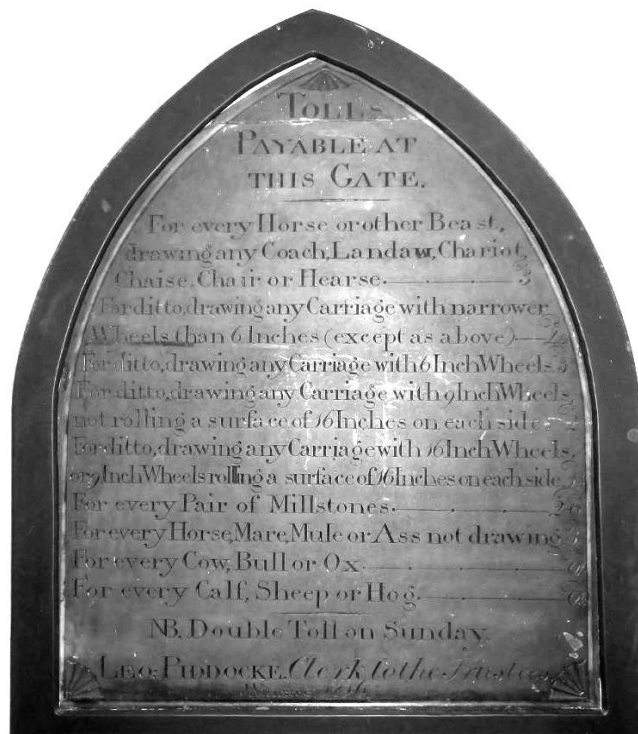 TOLLS
PAYABLE AT
THIS GATE.
For every Horse or other Beast,
drawing any Coach, Landaw, Chariot,
Chaise, Chair or Hearse.
For ditto, drawing any Carriage with narrower
Wheels than 6 Inches (except as above)
For ditto, drawing any Carriage with 6 Inch Wheels.
For ditto, drawing any Carriage with 9 Inch Wheels,
not rolling a surface of 16 Inches on each side
For ditto, drawing any Carriage with 16 Inch Wheels,
or 9 Inch Wheels rolling a surface of 16 Inches on each side
For every Pair of Millstones.
For every Horse, Mare, Mule or Ass not drawing
For every Cow, Bull or Ox
For every Calf, Sheep or Hog.
NB. Double Toll on Sunday.
LEO: PIDDOCKE, Clerk to the Trustees